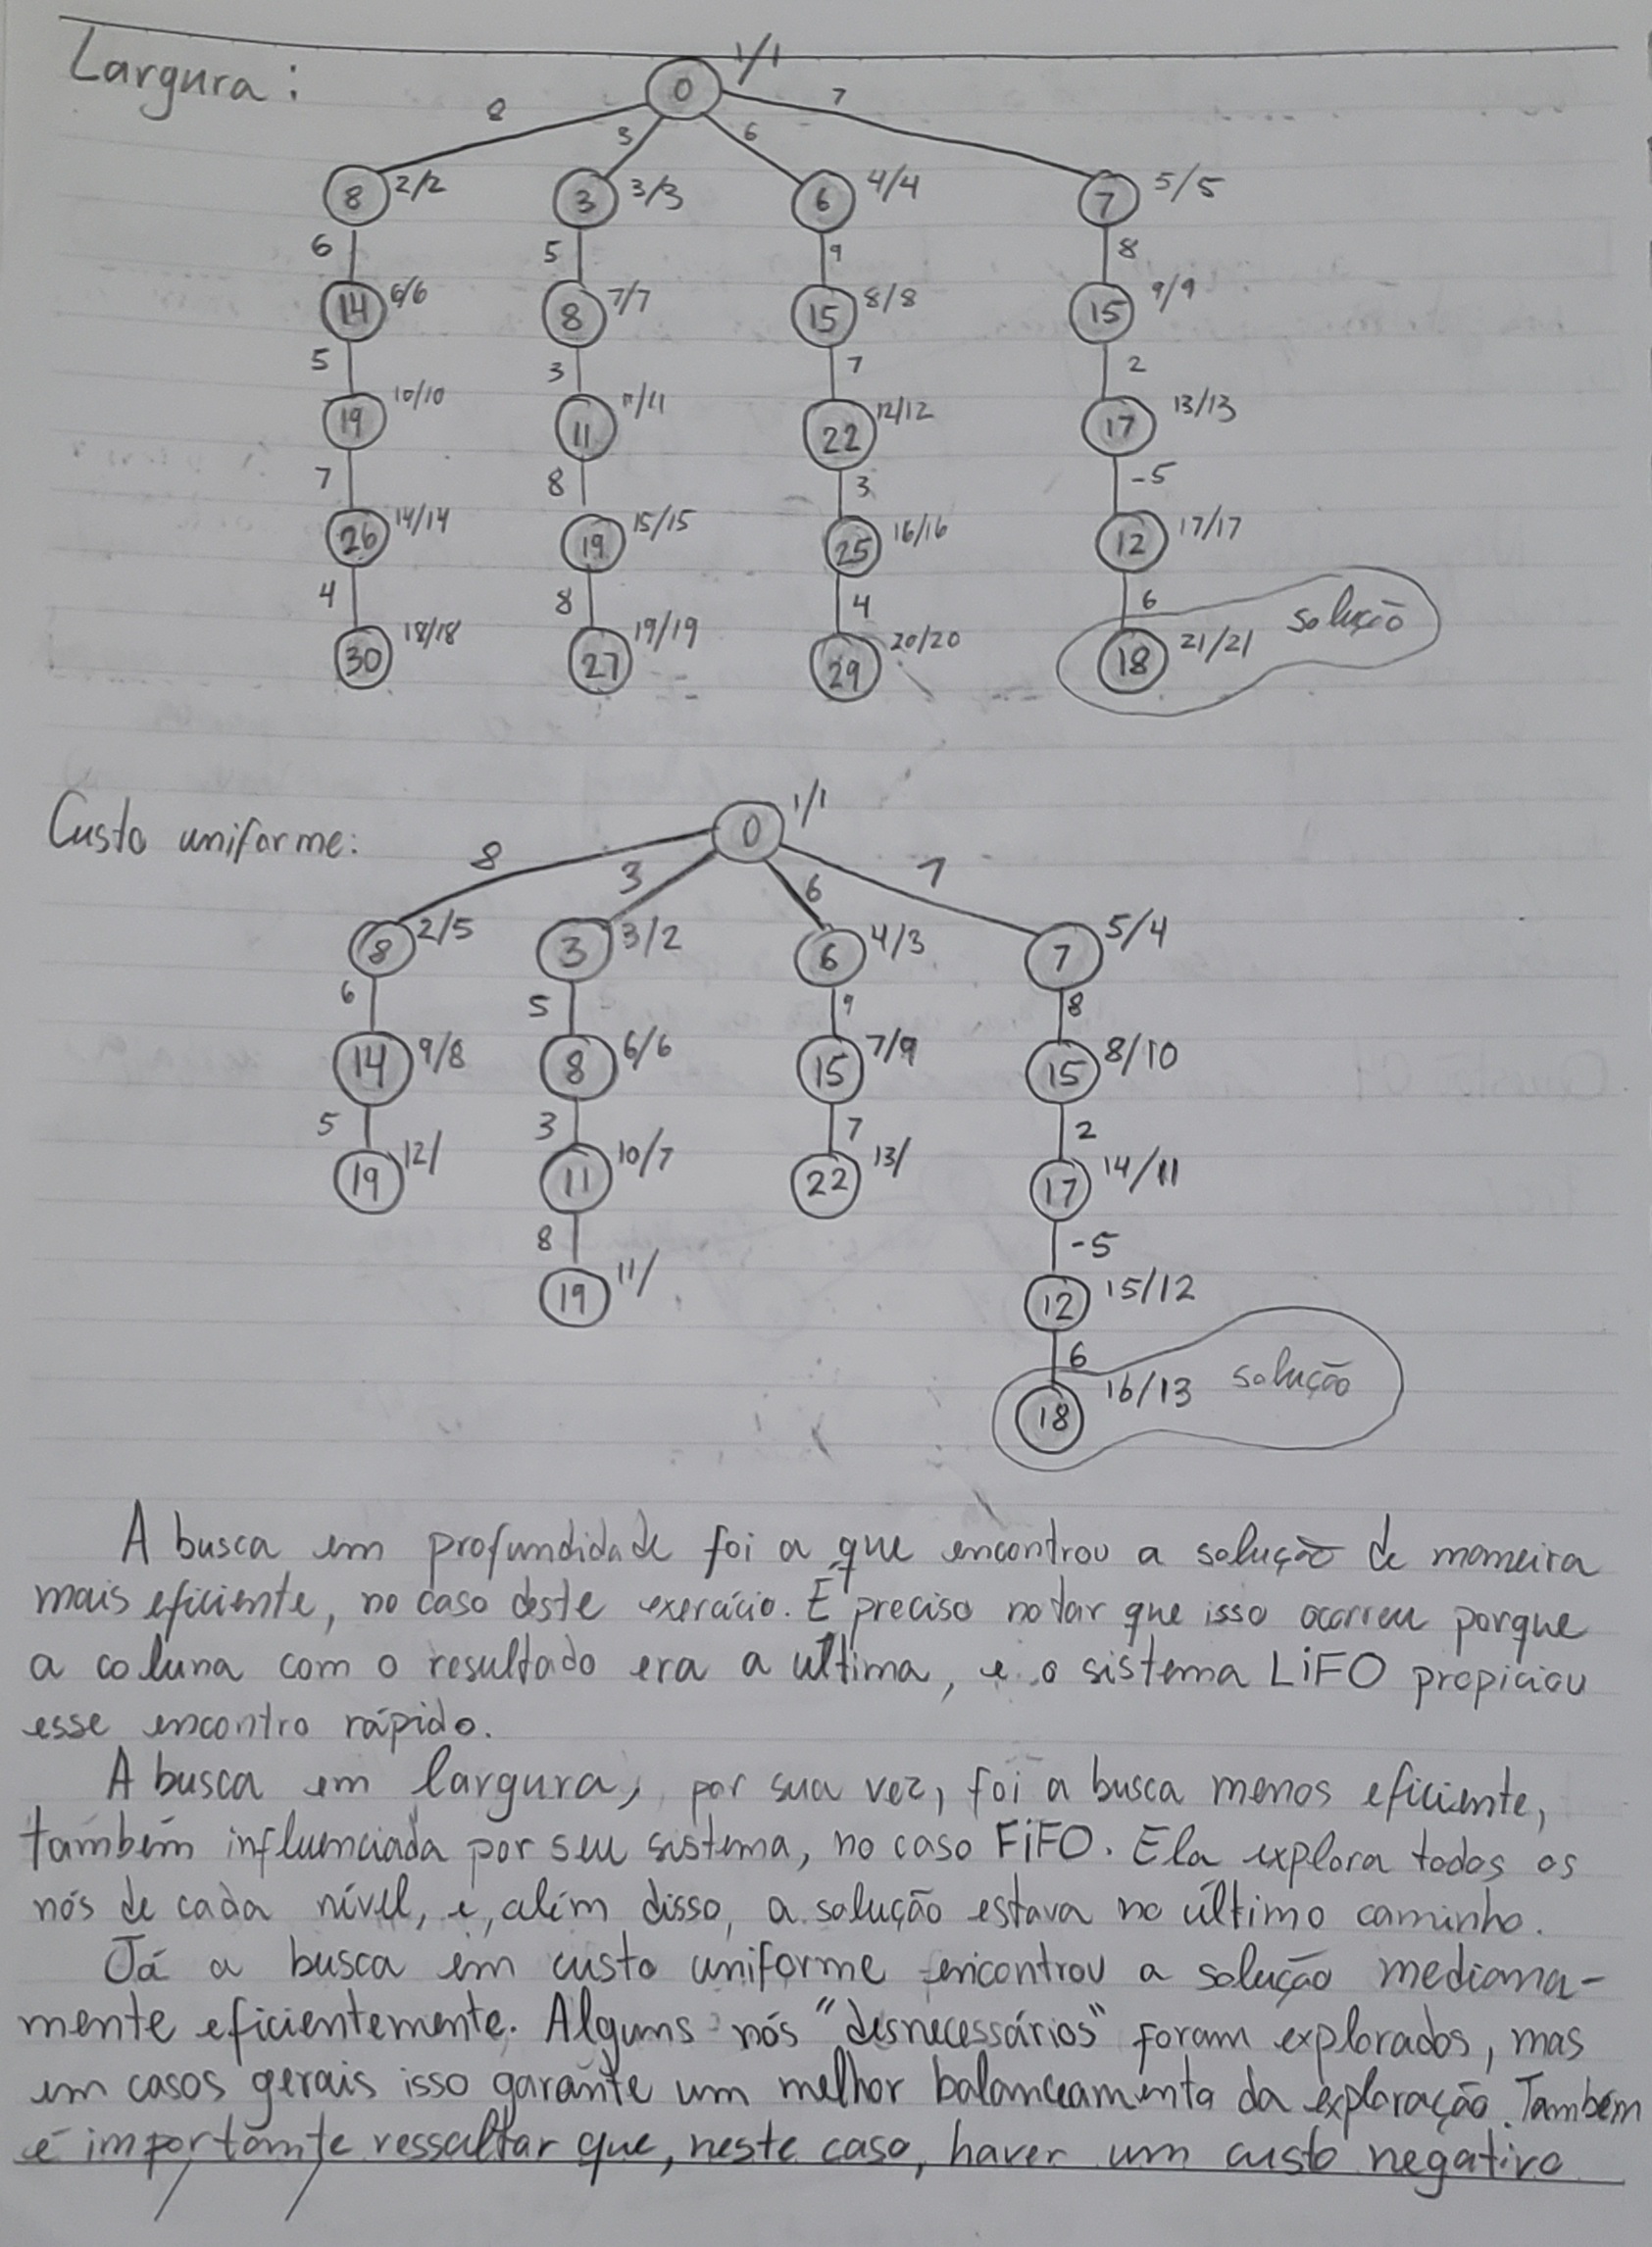 Largura:
0 1/1
8 3 6 7
8 2/2 3 3/3 6 4/4 7 5/5
6 5 9 8
14 6/6 8 7/7 15 8/8 15 9/9
5 3 7 2
19 10/10 11 11/11 22 12/12 17 13/13
7 8 3 -5
26 14/14 19 15/15 25 16/16 12 17/17
4 8 4 6
30 18/18 27 19/19 29 20/20 18 21/21 solução
Custo uniforme:
0 1/1
8 3 6 7
8 2/5 3 3/2 6 4/3 7 5/4
6 5 9 8
14 9/8 8 6/6 15 7/9 15 8/10
5 3 7 2
19 12/ 11 10/7 22 13/ 17 14/11
8 -5
19 11/ 12 15/12
6
18 16/13 solução
A busca em profundidade foi a que encontrou a solução de maneira
mais eficiente, no caso deste exercício. É preciso notar que isso ocorreu porque
a coluna com o resultado era a última, e o sistema LiFO propiciou
esse encontro rápido.
A busca em largura, por sua vez, foi a busca menos eficiente,
também influenciada por seu sistema, no caso FiFO. Ela explora todos os
nós de cada nível, e, além disso, a solução estava no último caminho.
Já a busca em custo uniforme encontrou a solução mediana-
mente eficientemente. Alguns nós "desnecessários" foram explorados, mas
em casos gerais isso garante um melhor balanceamento da exploração. Também
é importante ressaltar que, neste caso, haver um custo negativo